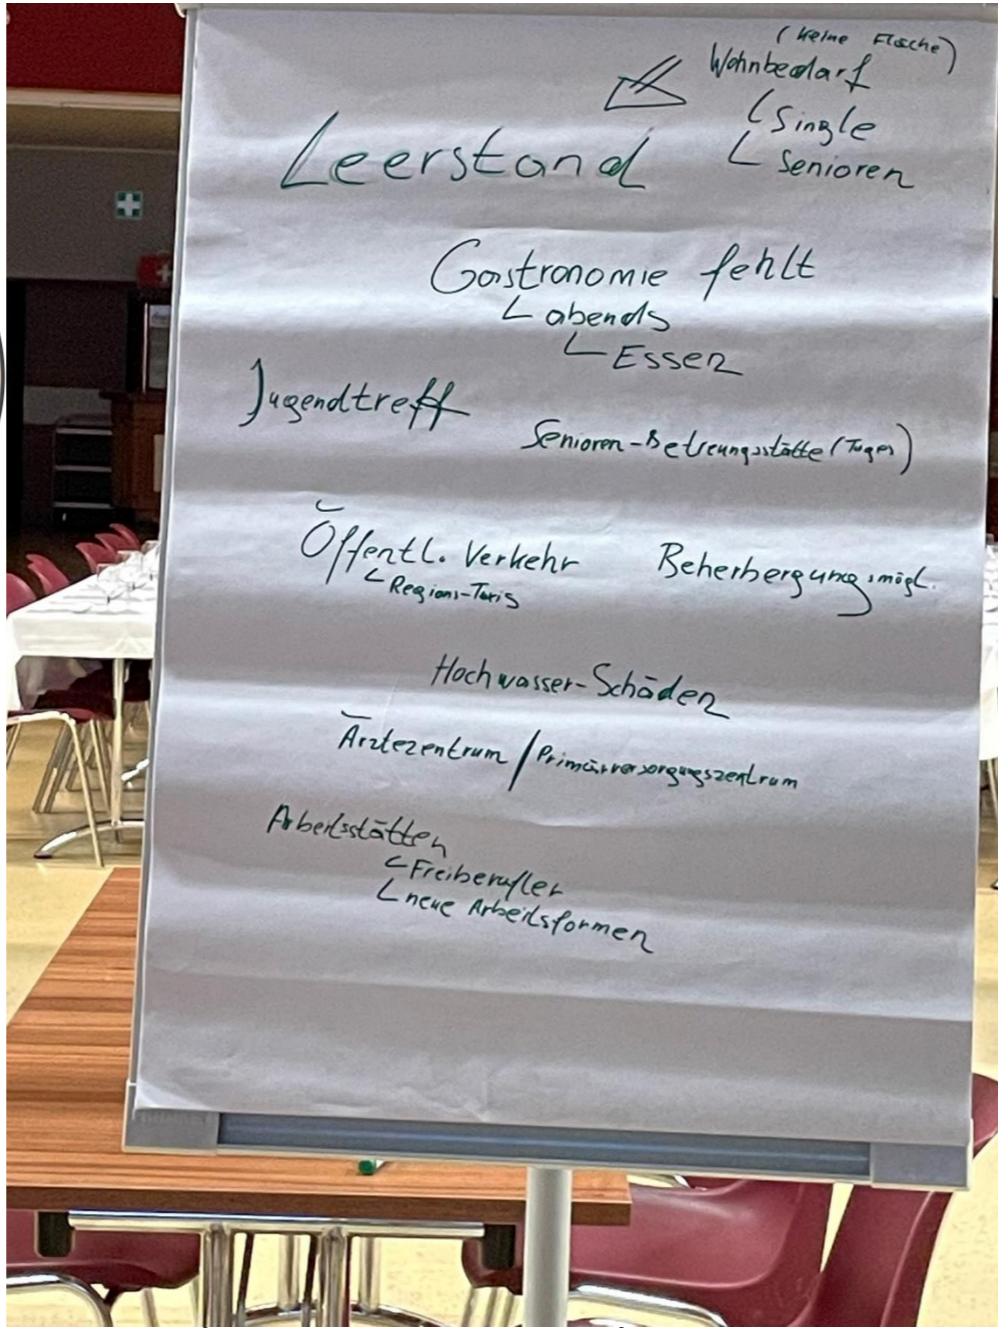 (keine Fläche)
Wohnbedarf
Single
Senioren
Leerstand
Gastronomie fehlt
abends
Essen
Jugendtreff
Senioren-Betreungsstätte (Tages)
Öffentl. Verkehr
Regions-Taxis
Beherbergungsmögl.
Hochwasser-Schäden
Ärztezentrum / Primärversorgungszentrum
Arbeitsstätten
Freiberufler
neue Arbeitsformen